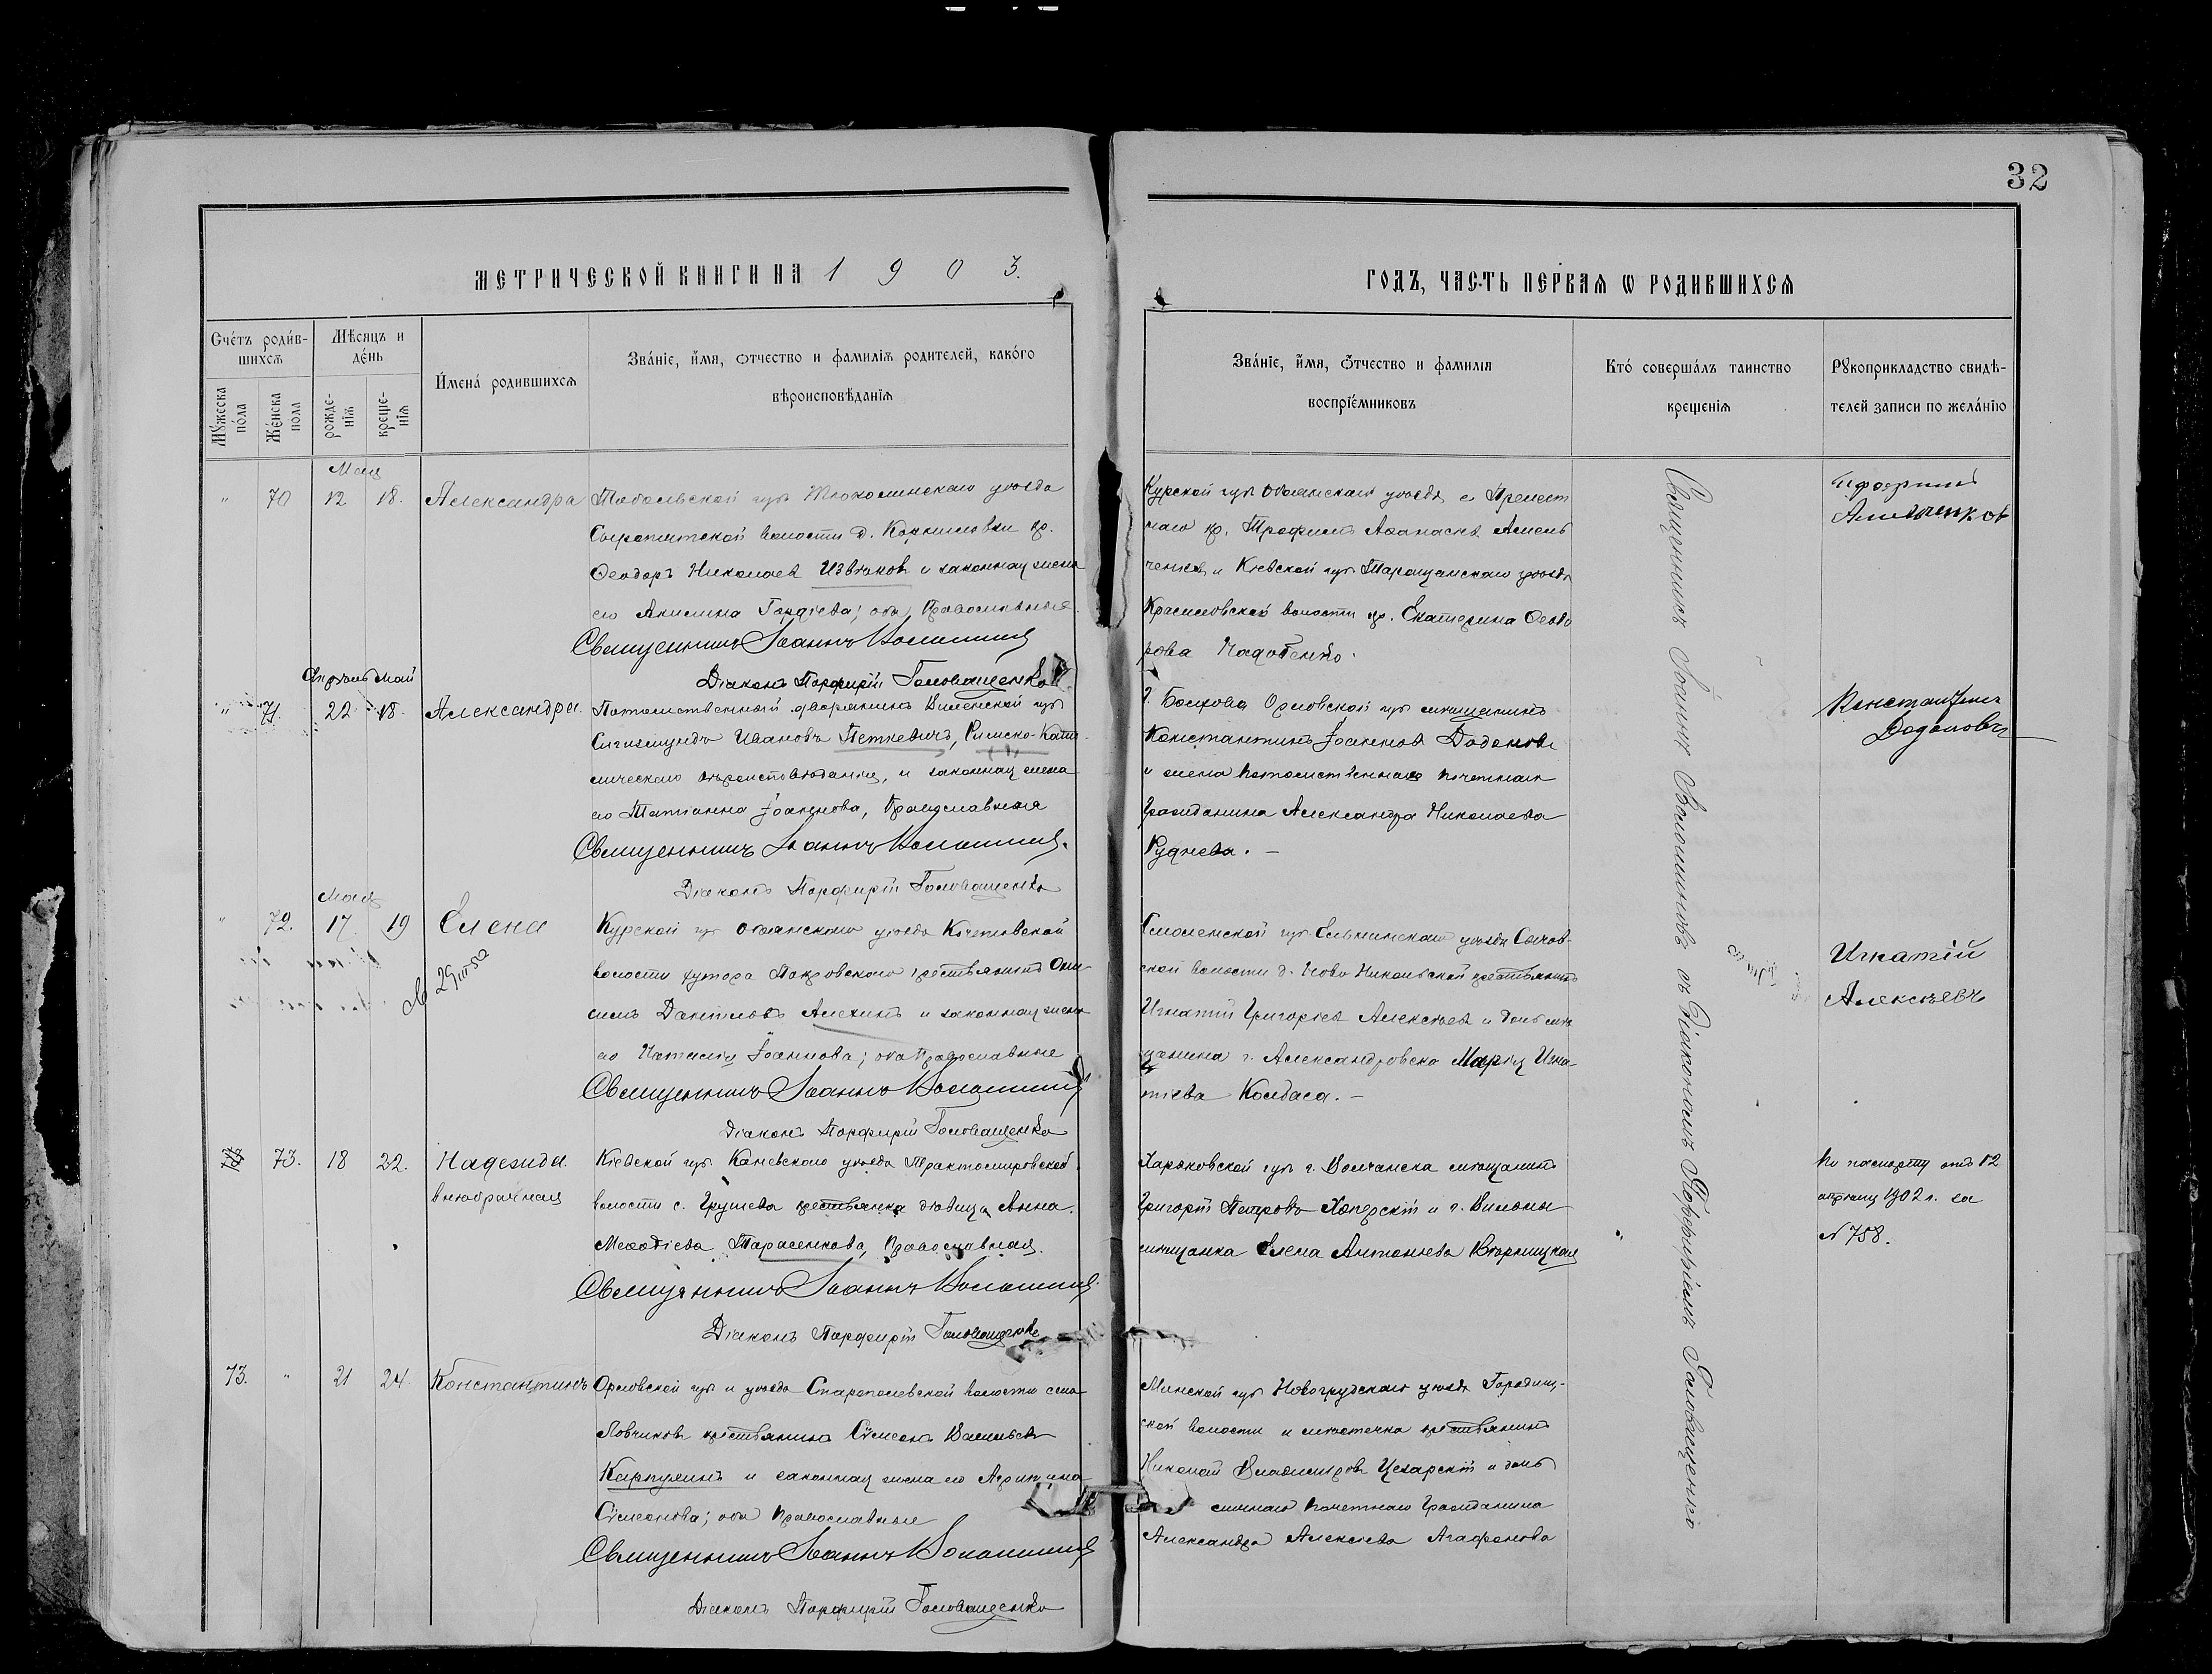 32
МЕТРИЧЕСКОЙ КНИГИ НА 1903.
ГОДЪ, ЧАСТЬ ПЕРВАЯ Ѡ РОДИВШИХСЯ
Счетъ родив-
шихся
Мужеска
пола
Женска
пола
Мѣсяцъ и
день
рожде-
нія
креще-
нія
Имена родившихся
Званіе, имя, отчество и фамилія родителей, какого
вѣроисповѣданія
Званіе, имя, отчество и фамилія
воспріемниковъ
Кто совершалъ таинство
крещенія
Рукоприкладство свидѣ-
телей записи по желанію
Мая
" 70 12 18. Александра
Тобольской губ уѣзда
волости д. кр.
Ѳеодоръ Николаевъ и законная жена
его Акилина Гордіева; оба Православные
Священникъ Іоаннъ Волошинъ
Діаконъ Порфирій Головащенко
Курской губ Обоянскаго уѣзда с.
кр. Трофимъ Аѳанасьевъ Амель
ченковъ и Кіевской губ Таращанскаго уѣзда
волости кр. Екатерина Ѳеодо
рова
Амельченков
Апрѣль Май
" 71. 22 18. Александра.
Потомственный дворянинъ Виленской губ
Сигизмундъ Ивановъ Петкевичъ, Римско-Като-
лическаго вѣроисповѣданія, и законная жена
его Татіанна Іоаннова, Православныя
Священникъ Іоаннъ Волошинъ.
Діаконъ Порфирій Головащенко
г. Болхова Орловской губ мѣщанинъ
Константинъ Іоанновъ Додоновъ
и жена потомственнаго почетнаго
гражданина Александра Николаева
Руднева. –
Константинъ
Додоновъ
Мая
" 72. 17. 19 Елена
Курской губ Обоянскаго уѣзда Кочетовской
волости хутора Покровскаго крестьянинъ Они-
симъ Даніиловъ Алехинъ и законная жена
его Наталія Іоаннова; оба Православные
Священникъ Іоаннъ Волошинъ
Діаконъ Порфирій Головащенко
Смоленской губ. Ельнинскаго уѣзда
ской волости д. Ново Никольской крестьянинъ
Игнатій Григорьевъ Алексѣевъ и дочь мѣ
щанина г. Александровска Марія Игна-
тіева Колбаса. –
Игнатій
Алексѣевъ
73. 18 22. Надежда.
внѣбрачная
Кіевской губ. Каневскаго уѣзда Трактомировской
волости с. Грушева крестьянка дѣвица Анна.
Меѳодіева Тарасенкова, Православная.
Священникъ Іоаннъ Волошинъ
Діаконъ Порфирій Головащенко
Харьковской губ г. Волчанска мѣщанинъ
Григорій Петровъ Хоперскій и г. Вильны
мѣщанка Елена Антоньева
По паспорту отъ 12
апрѣля 1902 г. за
№ 758.
73. " 21 24. Константинъ
Орловской губ и уѣзда волости села
Ловчиково крестьянинъ Сѵмеонъ Васильевъ
Карпухинъ и законная жена его Агрипина
Сѵмеонова; оба Православные
Священникъ Іоаннъ Волошинъ
Діаконъ Порфирій Головащенко
Минской губ Новогрудскаго уѣзда Городищ-
ской волости и мѣстечка крестьянинъ
Николай Владиміровъ и дочь
личнаго почетнаго гражданина
Александра Алексѣева Агафонова
Священникъ Іоаннъ Волошиновъ съ Діакономъ Порфиріемъ Головащенко